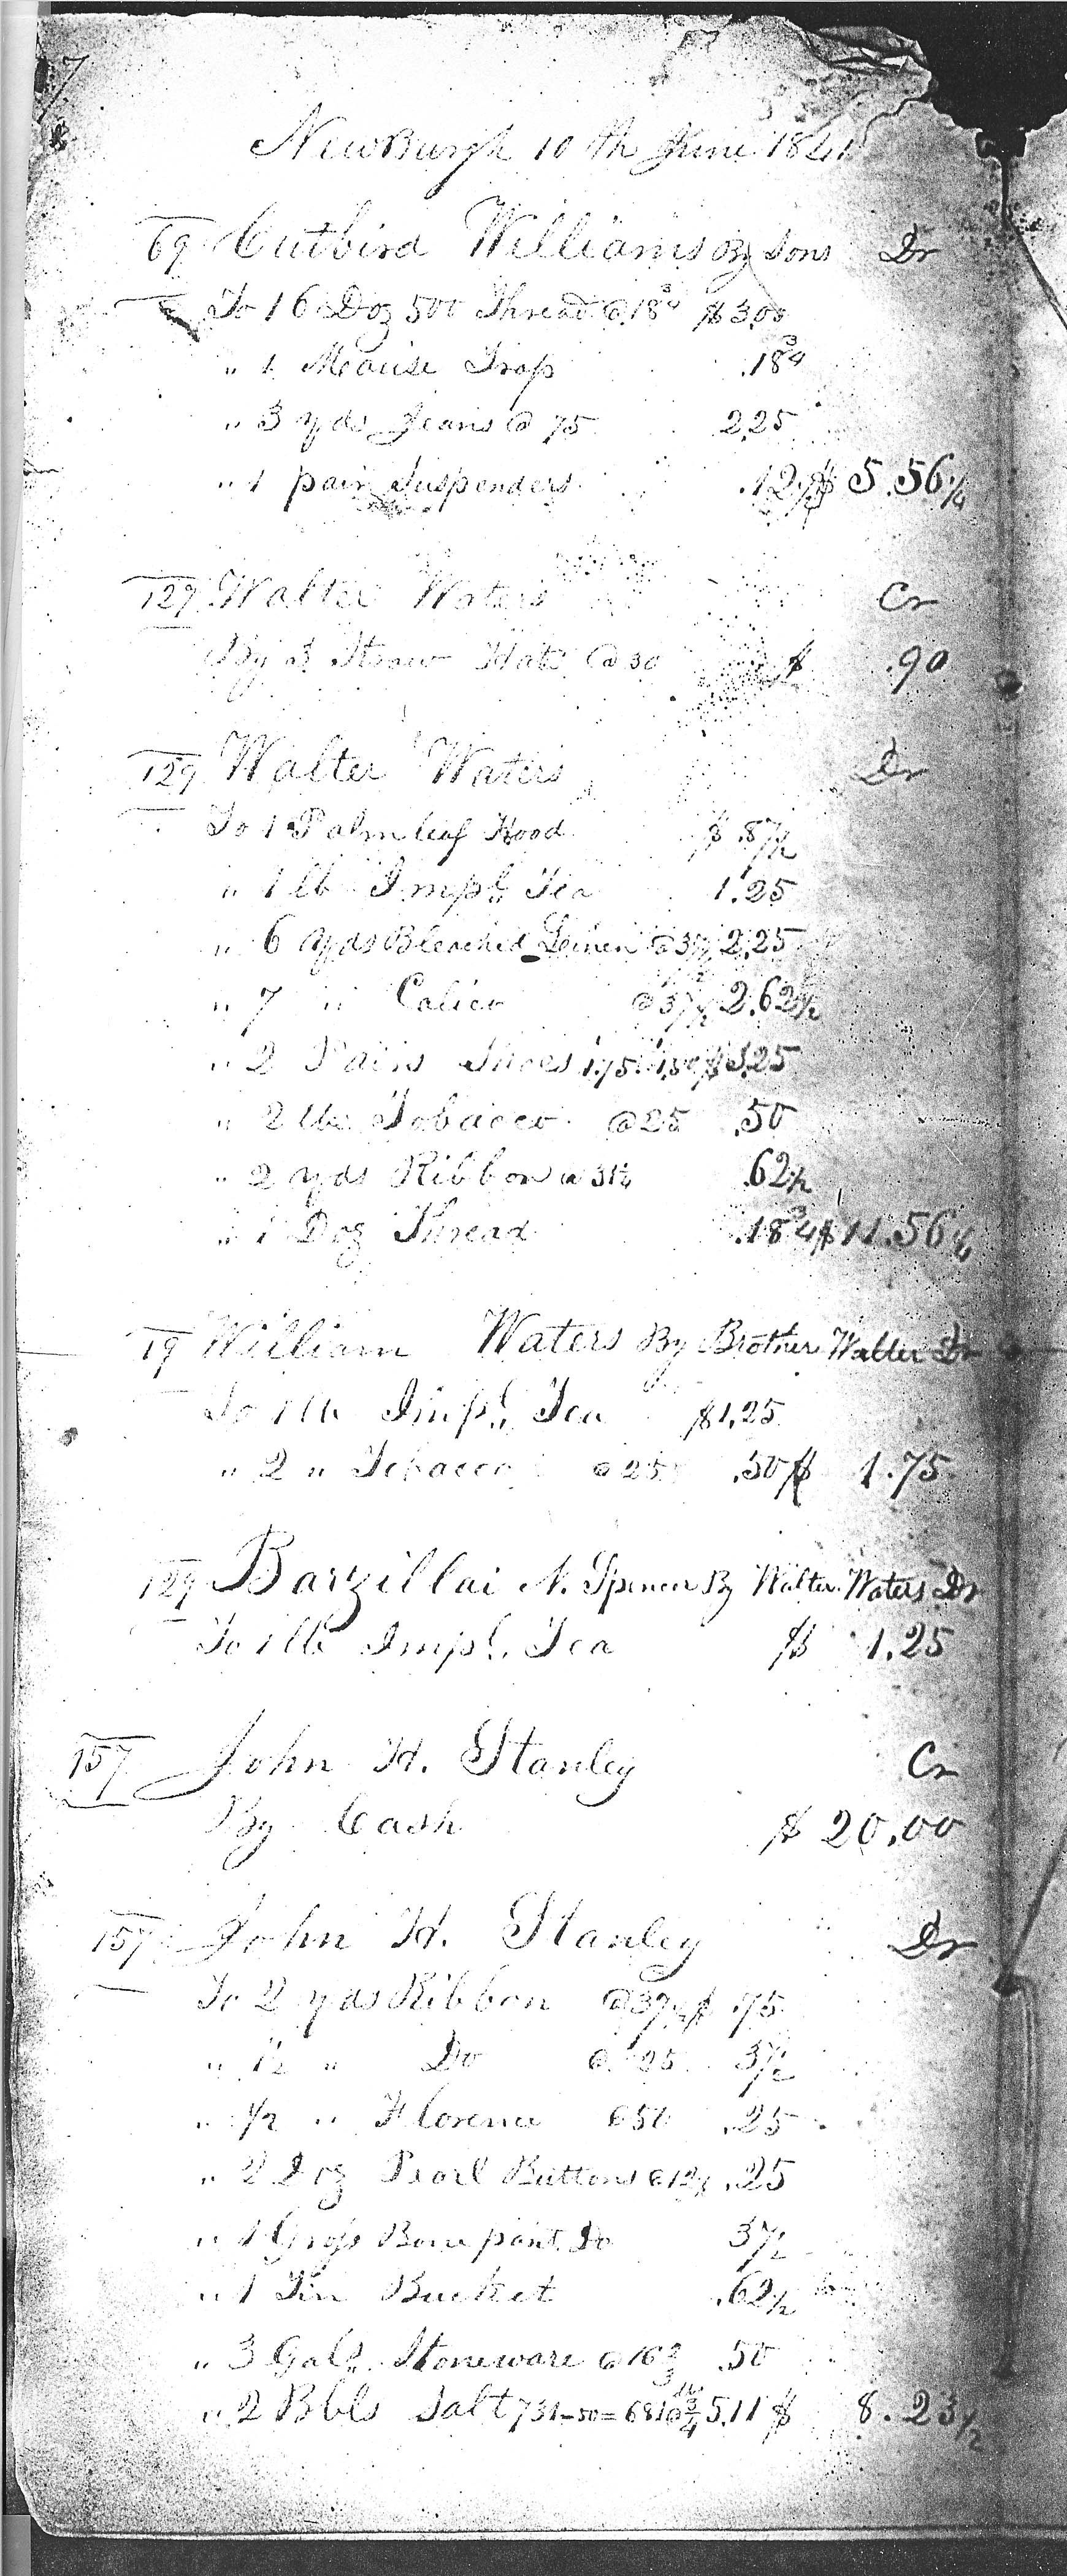 7
NewBurgh 10th June 1841
69 Cutbird Williams By Sons Dr
To 16 Doz 500 Thread @ 18 3/4 $3.00
" 1 Mouse Trap .18 3/4
" 3 yds Jeans @ 75 2.25
" 1 pair Suspenders .12 1/2 $ 5.56 1/4
129 Walter Waters Cr
By 3 Straw Hats @ 30 $ .90
129 Walter Waters Dr
To 1 Palm leaf Hood $ .87 1/2
" 1 lb Impl. Tea 1.25
" 6 yds Bleached Leinen @ 37 1/2 2.25
" 7 " Calico @ 37 1/2 2.62 1/2
" 2 Pairs Shoes 1.75 1.50 $ 3.25
" 2 lbs Tobacco @ 25 .50
" 2 yds Ribbon @ 31 1/4 .62 1/2
" 1 Doz Thread .18 3/4 $ 11.56 1/4
19 William Waters By Brother Walter Dr
To 1 lb Impl. Tea $1.25
" 2 " Tobacco @ 25 .50 $ 1.75
129 Barzillai N. Spencer By Walter Waters Dr
To 1 lb Impl. Tea $ 1.25
157 John H. Stanley Cr
By Cash $ 20.00
157 John H. Stanley Dr
To 2 yds Ribbon @ 37 1/2 $ .75
" 1 1/2 " Do @ 25 37 1/2
" 1/2 " Florence @ 50 .25
" 2 Doz Pearl Buttons @ 12 1/2 .25
" 1 Gross Bone pant. Do 37 1/2
" 1 Tin Bucket .62 1/2
" 3 Gals. Stoneware @ 16 2/3 .50
" 2 Bbls Salt 731-50=681 @ 3/4 5.11 $ 8.23 1/2